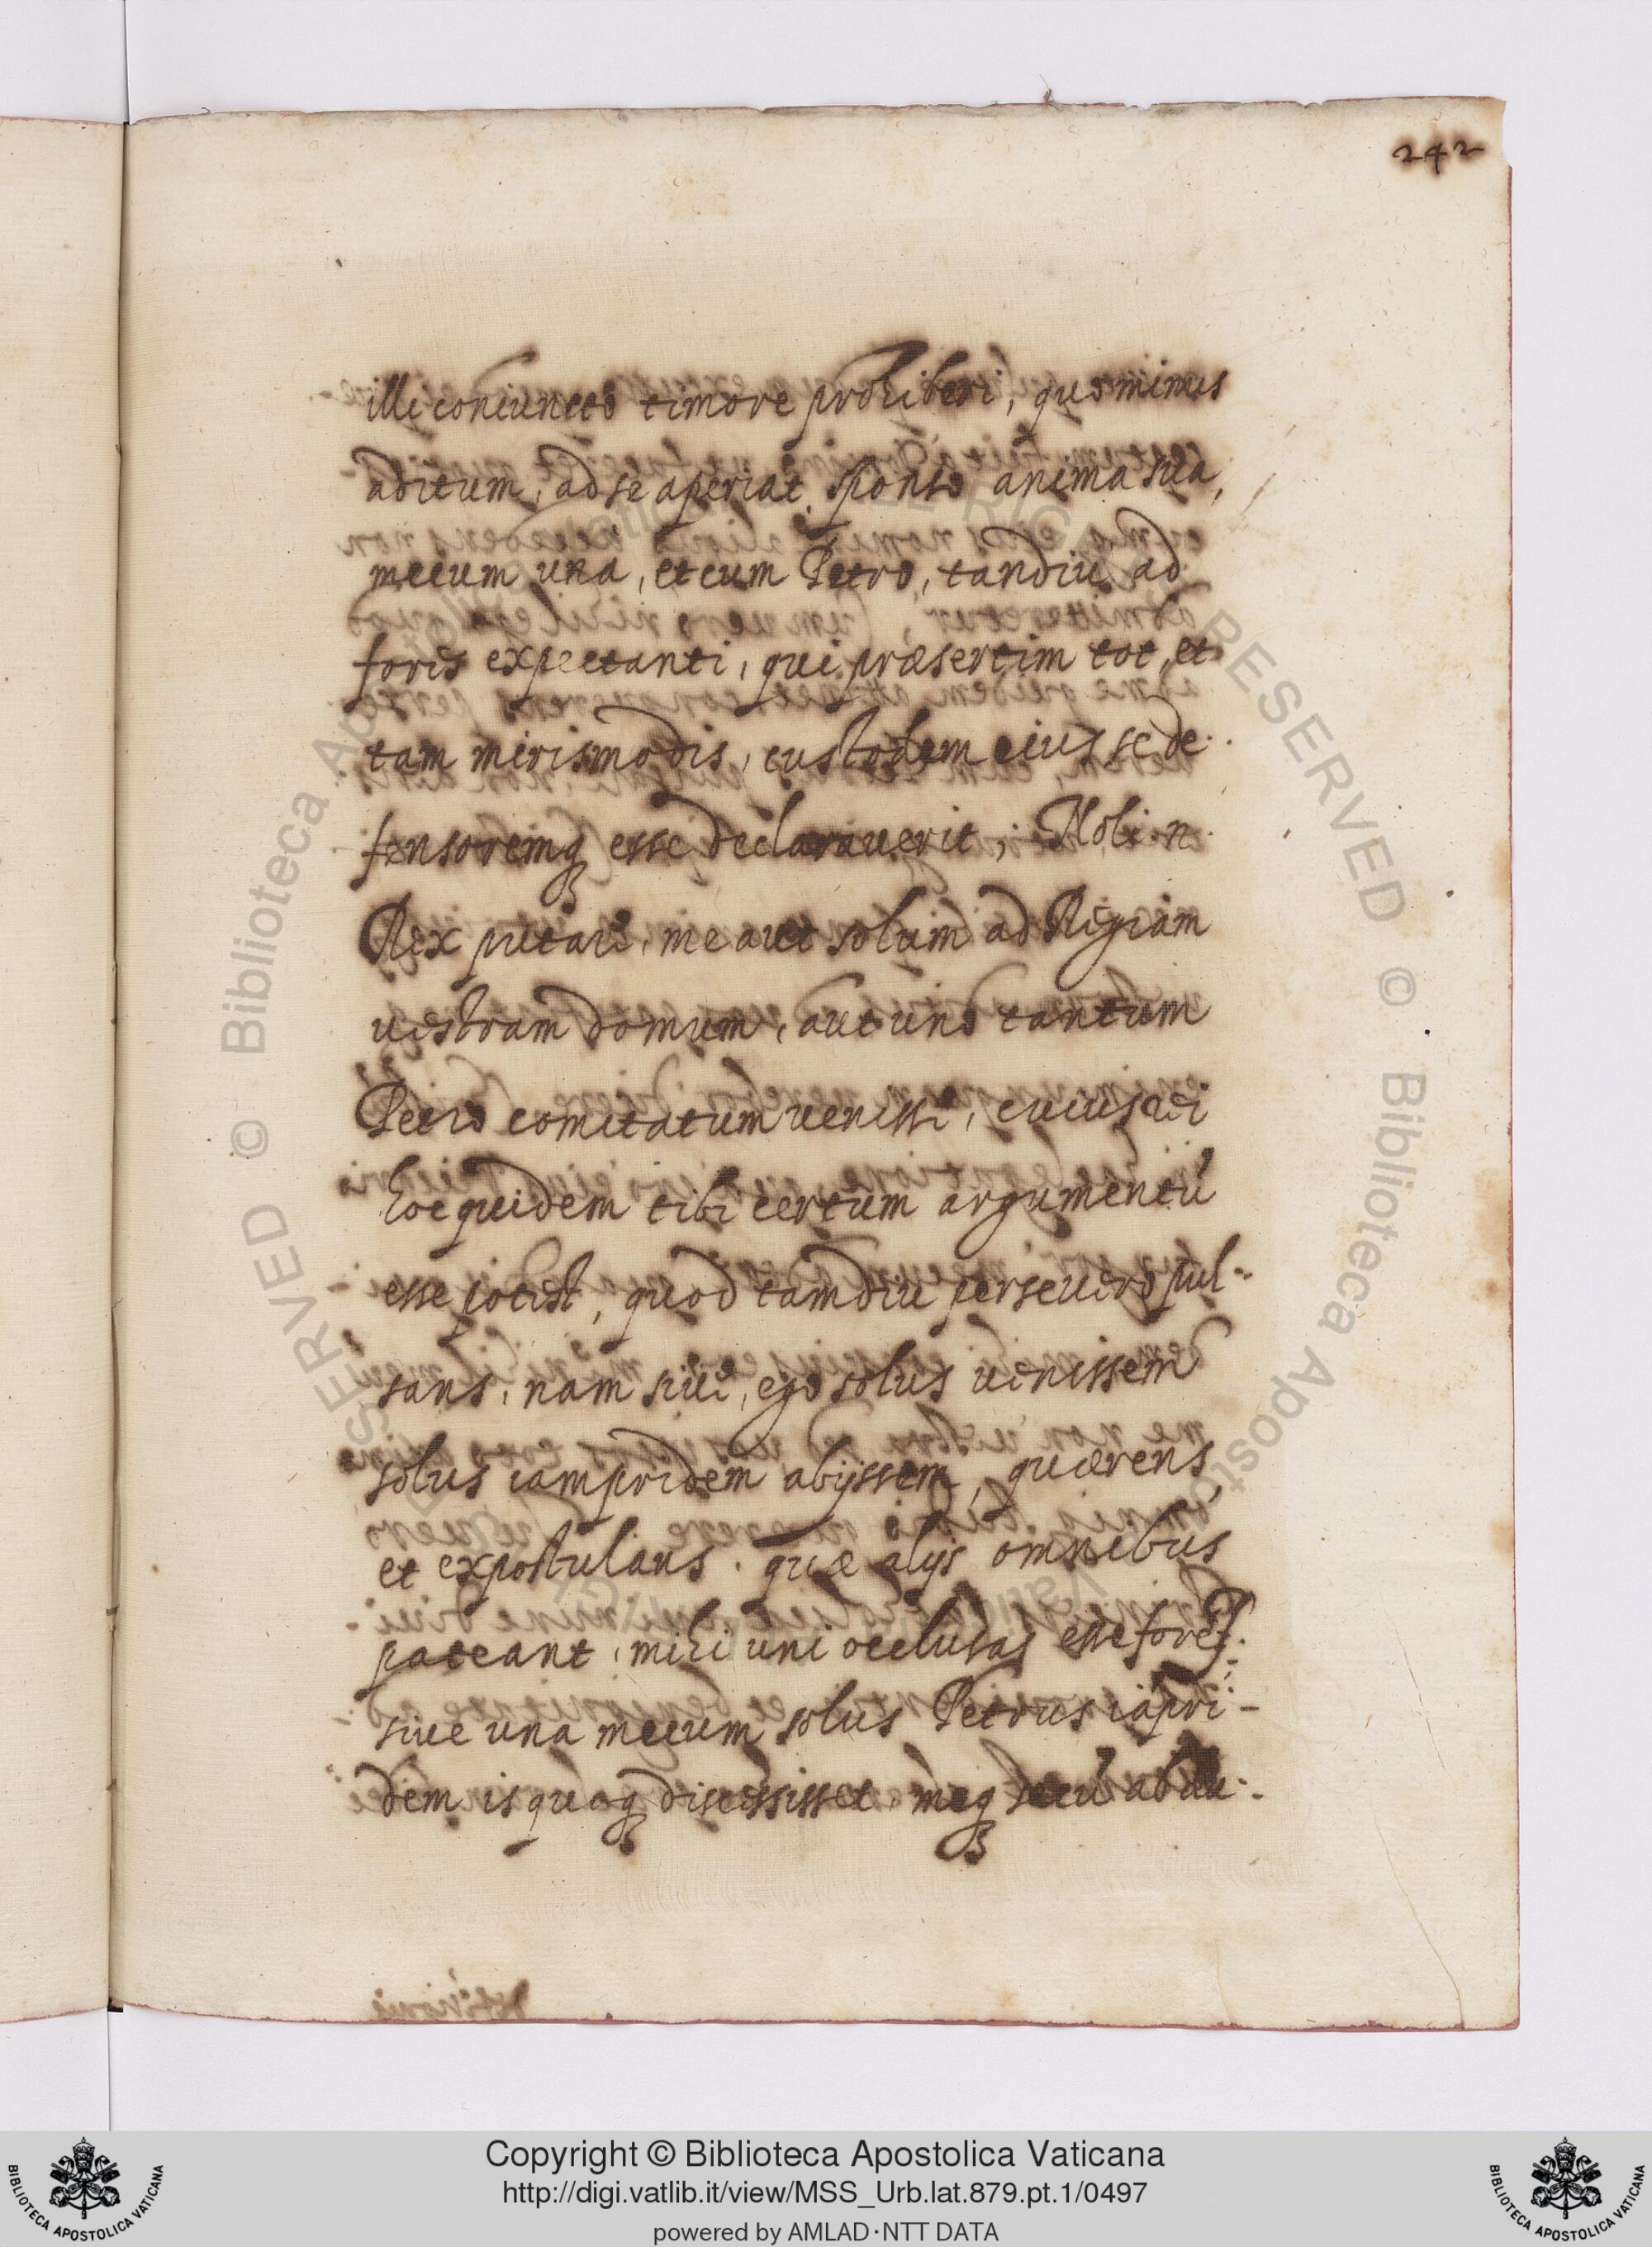 242
illi coniuncto timore prohiberi, quo minus
aditum, ad se aperiat sponso animæ suæ,
mecum una, et cum Petro, tandiu ad
foris expectanti, qui præsertim tot, et
tam miris modis, custodem eius se de-
fensoremq esse declarauerit; Noli n.
Rex putare, me aut solum ad Regiam
uestram domum, aut uno tantum
Petro comitatum uenisse, cuius rei
hoc quidem tibi certum argumentũ
esse potest, quod tamdiu perseuero pul-
sans, nam siue, ego solus uenissem
solus iampridem abijssem, quærens
et expostulans. quæ alijs omnibus
pateant, mihi uni occlusas esse fores;
siue una mecum solus Petrus iãpri-
dem is quoq discessisset, meq secũ abdu-
Copyright © Biblioteca Apostolica Vaticana
http://digi.vatlib.it/view/MSS_Urb.lat.879.pt.1/0497
powered by AMLAD·NTT DATA
BIBLIOTECA APOSTOLICA VATICANA
BIBLIOTECA APOSTOLICA VATICANA